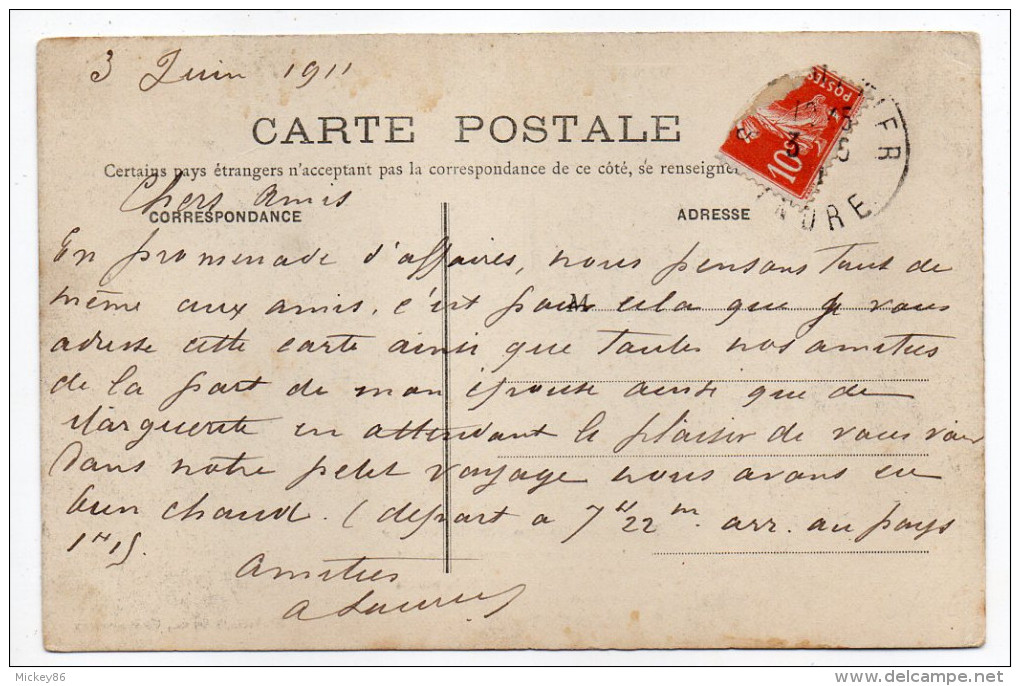 3 Juin 1911
CARTE POSTALE
Certains pays étrangers n'acceptant pas la correspondance de ce côté, se renseigner
Chers Amis
CORRESPONDANCE
ADRESSE
En promenade d'affaires, nous pensons tout de
même aux amis, c'est pour cela que je vous
M
adresse cette carte ainsi que toutes nos amitiés
de la part de mon épouse ainsi que de
Marguerite en attendant le plaisir de vous voir
Dans notre petit voyage nous avons eu
bien chaud. (départ a 7 H 22 m. arr. au pays
1 H 15.
Amitiés
POSTES
10
INDRE
Mickey86
delcampe.net